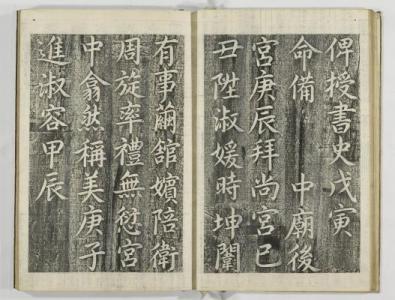 俾授書史戊寅
命備　中廟後
宮庚辰拜尚宮己
丑陞淑媛時坤闈
有事繭舘嬪陪衛
周旋率禮無愆宮
中翕然稱美庚子
進淑容甲辰